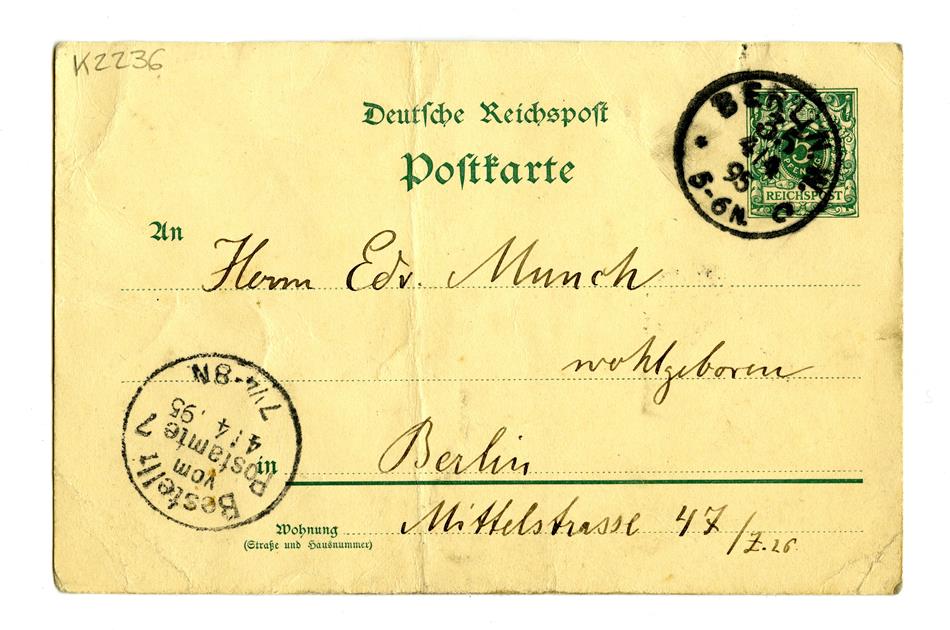 K2236
Deutsche Reichspost
Postkarte
BERLIN W.
35
4/4
95
5-6N.
PFENNIG
REICHSPOST
An Herrn Edv. Munch
wohlgeboren
in Berlin
Wohnung Mittelstrasse 47/Z. 26
(Straße und Hausnummer)
Bestellt
vom
Postamte 7
4/4.95
7¼-8N.